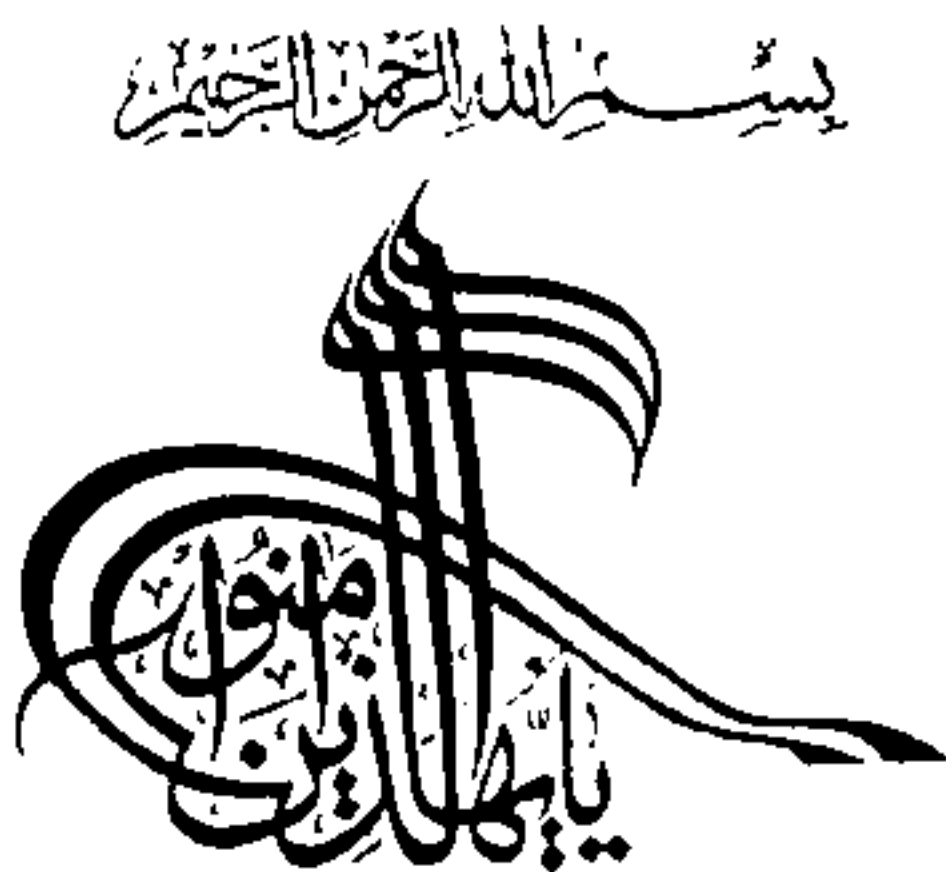 بِسْمِ اللهِ الرَّحْمٰنِ الرَّحِيْمِ
يا أيها الذين آمنوا